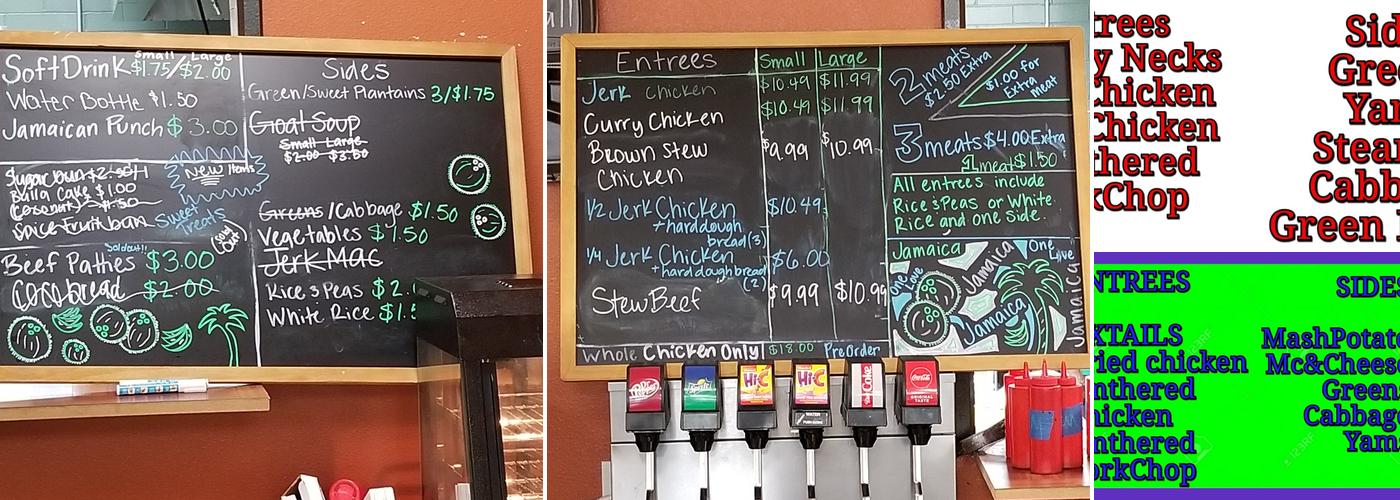 Small Large
Soft Drink $1.75/$2.00
Water Bottle $1.50
Jamaican Punch $3.00
New Items
Sugar bun $2.50/1
Bulla Cake $1.00
(Coconut) $1.50
Spice fruit bun
Sweet Treats
Sold out!!
Sold Out
Beef Patties $3.00
Coco bread $2.00
Sides
Green/Sweet Plantains 3/$1.75
Goat Soup
Small Large
$2.00 $3.50
Greens/Cabbage $1.50
Vegetables $1.50
Jerk Mac
Rice & Peas $2.
White Rice $1.5
all
Entrees Small Large
Jerk chicken $10.49 $11.99
Curry Chicken $10.49 $11.99
Brown Stew $9.99 $10.99
Chicken
1/2 Jerk Chicken $10.49
+ hard dough
bread (3)
1/4 Jerk Chicken $6.00
+ hard dough bread
(2)
Stew Beef $9.99 $10.99
Whole Chicken Only $18.00 Pre Order
2 meats
$2.50 Extra
$1.00 for
Extra
meat
3 meats $4.00 Extra
1 meat $1.50
All entrees include
Rice & Peas or White
Rice and one side.
Jamaica
One Love
One Love
Jamaica
Jamaica
Jamaica
Dr Pepper
Hi-C
Hi-C
WATER
Coke
Coca-Cola
ORIGINAL
TASTE
trees
y Necks
Chicken
Chicken
thered
kChop
Sid
Gree
Yam
Stean
Cabb
Green
NTREES
XTAILS
ried chicken
nthered
hicken
nthered
orkChop
SIDES
MashPotato
Mc&Cheese
Green
Cabbag
Yam
123RF